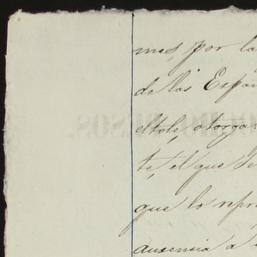 mes, por la
de las Espa
otorga
te, el que se
que lo repre
ausencia a